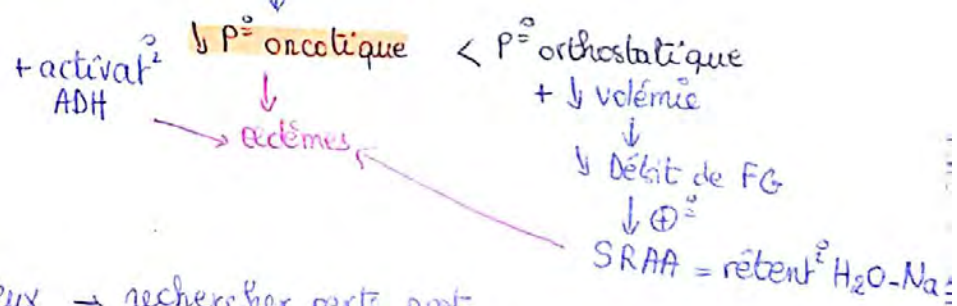 ↓ P° oncotique < P° orthostatique
+ activat° ADH
+ ↓ volémie
↓
↓ Débit de FG
↓ ⊕°
SRAA = rétent° H₂O-Na
↓
œdèmes
→ rechercher